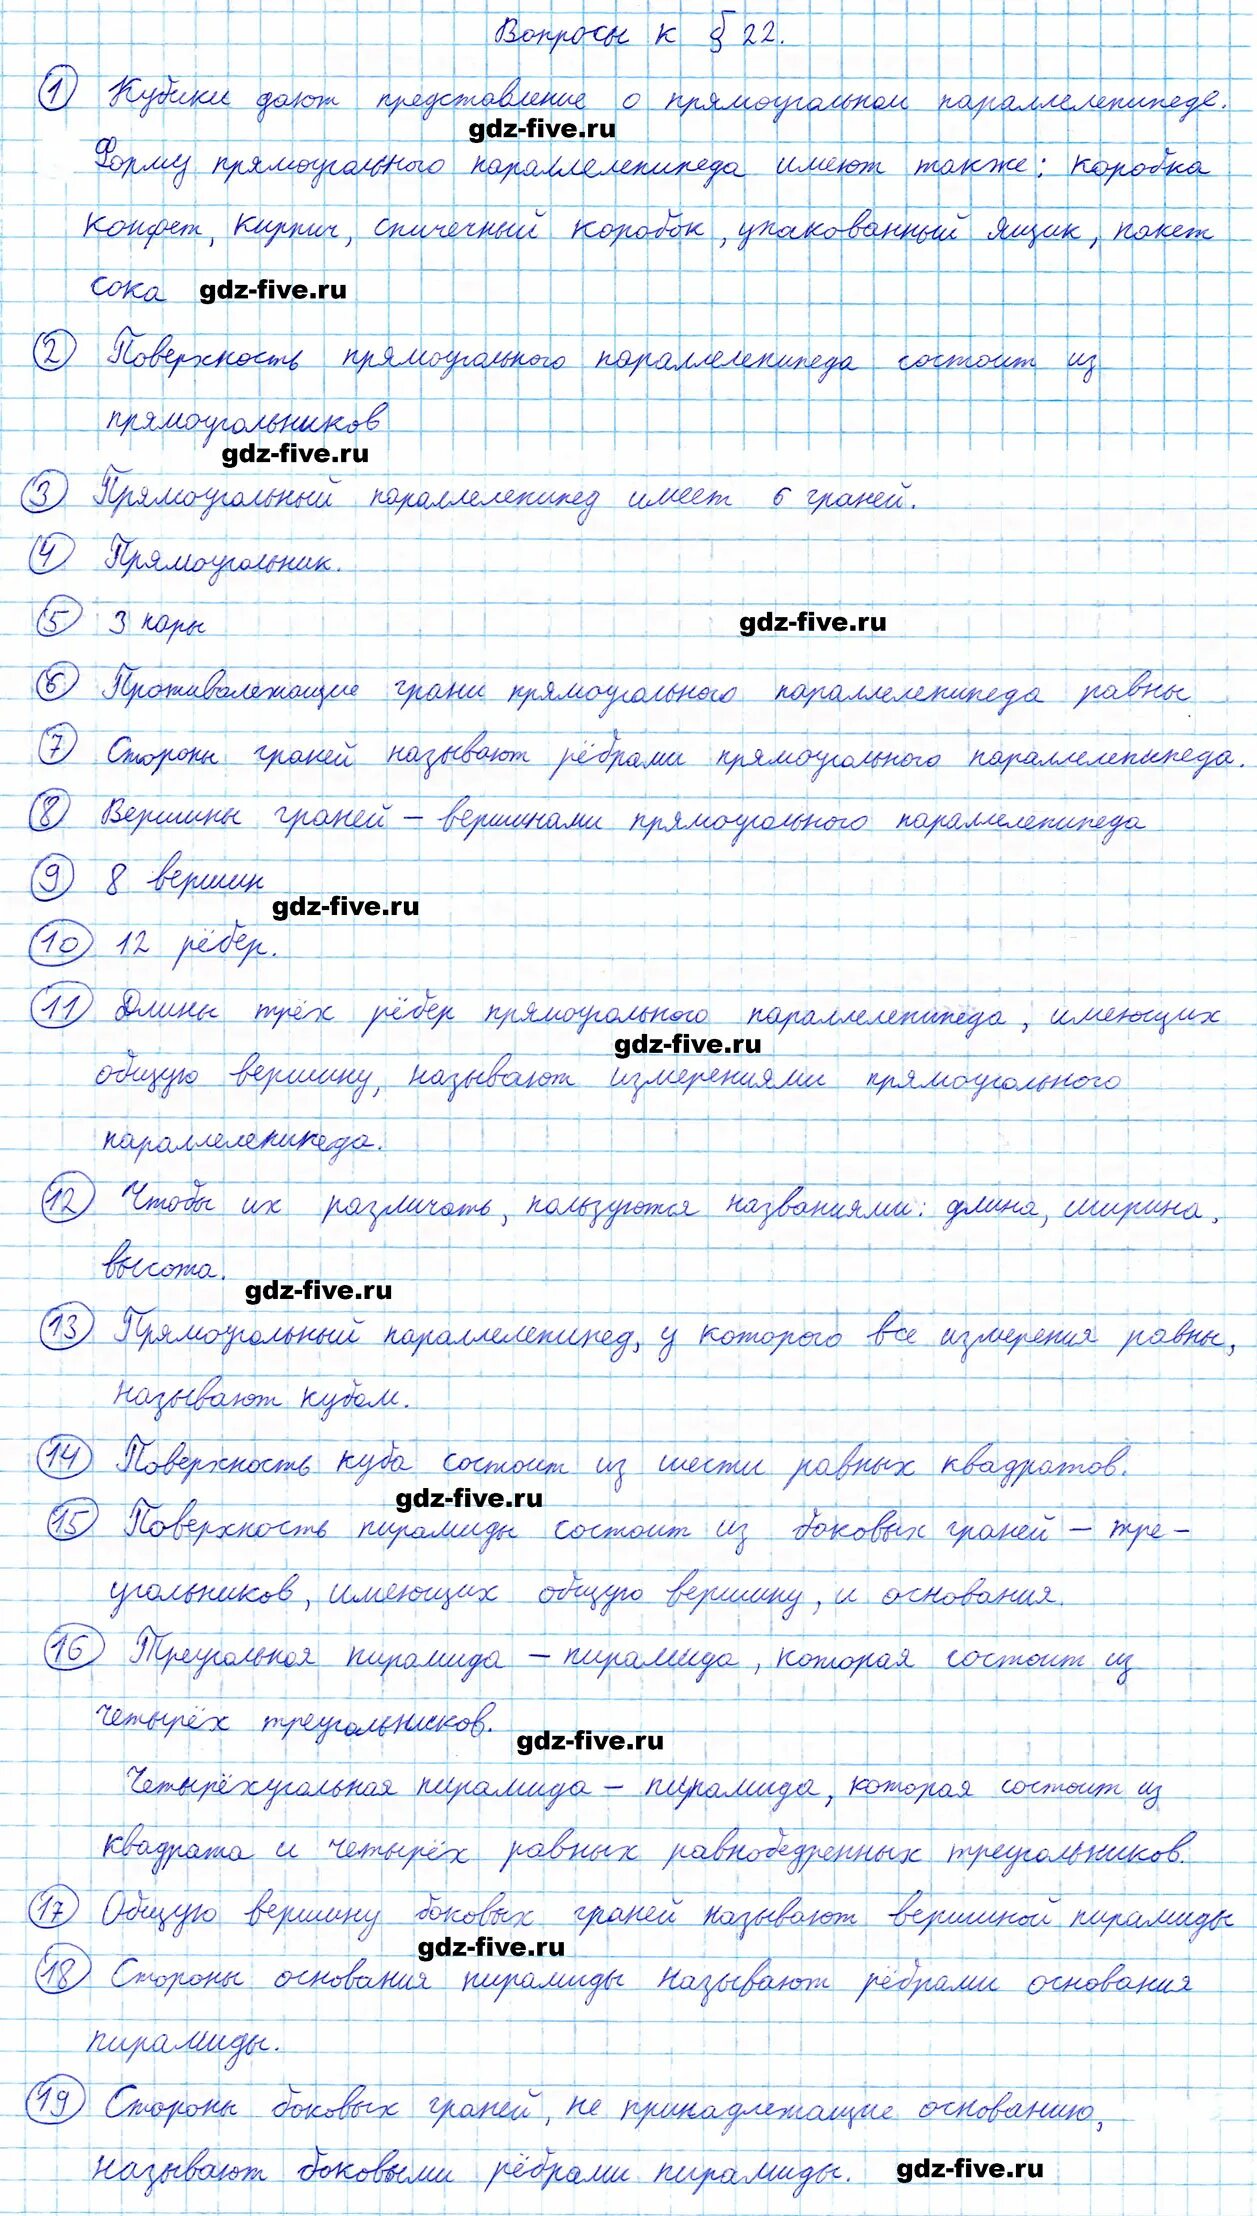 Вопросы к § 22.
① Кубики дают представление о прямоугольном параллелепипеде.
gdz-five.ru
Форму прямоугольного параллелепипеда имеют также: коробка
конфет, кирпич, спичечный коробок, упакованный ящик, пакет
сока gdz-five.ru
② Поверхность прямоугольного параллелепипеда состоит из
прямоугольников
gdz-five.ru
③ Прямоугольный параллелепипед имеет 6 граней.
④ Прямоугольник.
⑤ 3 пары gdz-five.ru
⑥ Противолежащие грани прямоугольного параллелепипеда равны
⑦ Стороны граней называют рёбрами прямоугольного параллелепипеда.
⑧ Вершины граней – вершинами прямоугольного параллелепипеда
⑨ 8 вершин
gdz-five.ru
⑩ 12 рёбер.
⑪ Длины трёх рёбер прямоугольного параллелепипеда, имеющих
gdz-five.ru
общую вершину, называют измерениями прямоугольного
параллелепипеда.
⑫ Чтобы их различать, пользуются названиями: длина, ширина,
высота.
gdz-five.ru
⑬ Прямоугольный параллелепипед, у которого все измерения равны,
называют кубом.
⑭ Поверхность куба состоит из шести равных квадратов.
gdz-five.ru
⑮ Поверхность пирамиды состоит из боковых граней – тре-
угольников, имеющих общую вершину, и основания.
⑯ Треугольная пирамида – пирамида, которая состоит из
четырёх треугольников.
gdz-five.ru
Четырёхугольная пирамида – пирамида, которая состоит из
квадрата и четырёх равных равнобедренных треугольников.
⑰ Общую вершину боковых граней называют вершиной пирамиды
gdz-five.ru
⑱ Стороны основания пирамиды называют рёбрами основания
пирамиды.
⑲ Стороны боковых граней, не принадлежащие основанию,
называют боковыми рёбрами пирамиды. gdz-five.ru